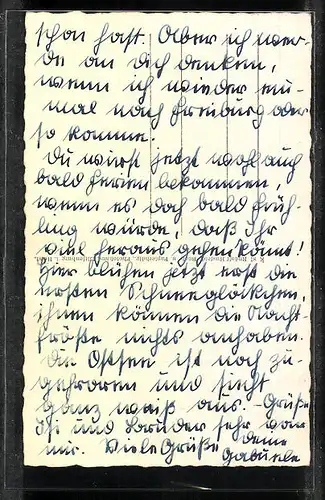 schon hast. Aber ich wer-
de an dich denken,
wenn ich wieder ein-
mal nach Freiburg oder
so komme.
Du wirst jetzt wohl auch
bald Ferien bekommen,
wenn es doch bald Früh-
ling würde, daß Ihr
viel heraus gehen könnt!
Hier blühen jetzt erst die
ersten Schneeglöckchen,
ihnen können die Nacht-
fröste nichts anhaben.
Die Ostsee ist noch zu-
gefroren und sieht
ganz weiß aus. - Grüße
und sehr von
mir. Viele Grüße deine
Gabriele